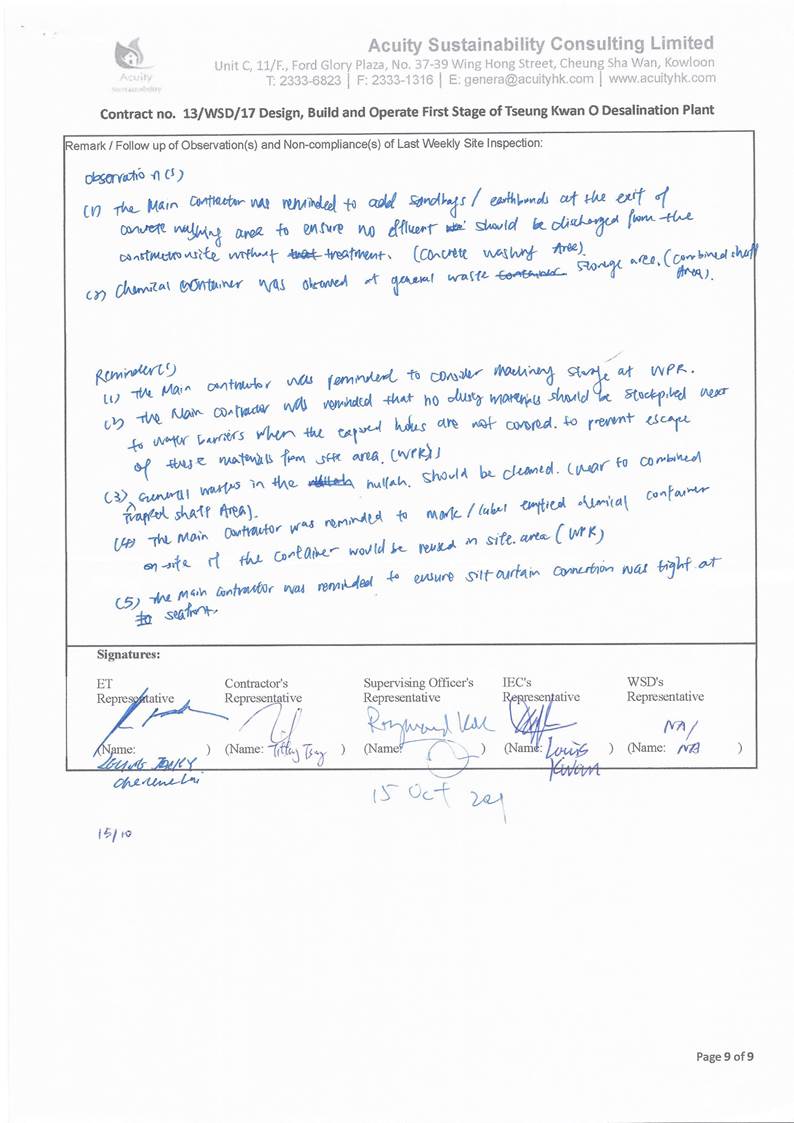 Acuity Sustainability Consulting Limited
Unit C, 11/F., Ford Glory Plaza, No. 37-39 Wing Hong Street, Cheung Sha Wan, Kowloon
T: 2333-6823 | F: 2333-1316 | E: genera@acuityhk.com | www.acuityhk.com
Acuity
Sustainability
Contract no. 13/WSD/17 Design, Build and Operate First Stage of Tseung Kwan O Desalination Plant
Remark / Follow up of Observation(s) and Non-compliance(s) of Last Weekly Site Inspection:
observation(s)
(1) The Main Contractor was reminded to add sandbags / earthbunds at the exit of
concrete washing area to ensure no effluent should be discharged from the
construction site without treatment. (Concrete washing Area)
(2) Chemical container was observed at general waste container storage area. (combined shaft
Area).
Reminder(s)
(1) The Main contractor was reminded to consider machinery storage at WPR.
(2) The Main contractor was reminded that no dusty materials should be stockpiled next
to water barriers when the exposed holes are not covered. to prevent escape
of these materials from site area. (WPR)
(3) General wastes in the nullah. Should be cleaned. (near to combined
trapped shaft Area).
(4) The Main Contractor was reminded to mark / label emptied chemical container
on-site if the container would be reused in site area (WPR)
(5) The Main Contractor was reminded to ensure silt curtain connection was tight at
to seafront.
Signatures:
ET Representative
Contractor's Representative
Supervising Officer's Representative
IEC's Representative
WSD's Representative
Raymond
NA/
(Name: ) (Name: Tiffany Tsoy ) (Name: ) (Name: Louis Kwan ) (Name: NA )
15 Oct 2021
15/10
Page 9 of 9